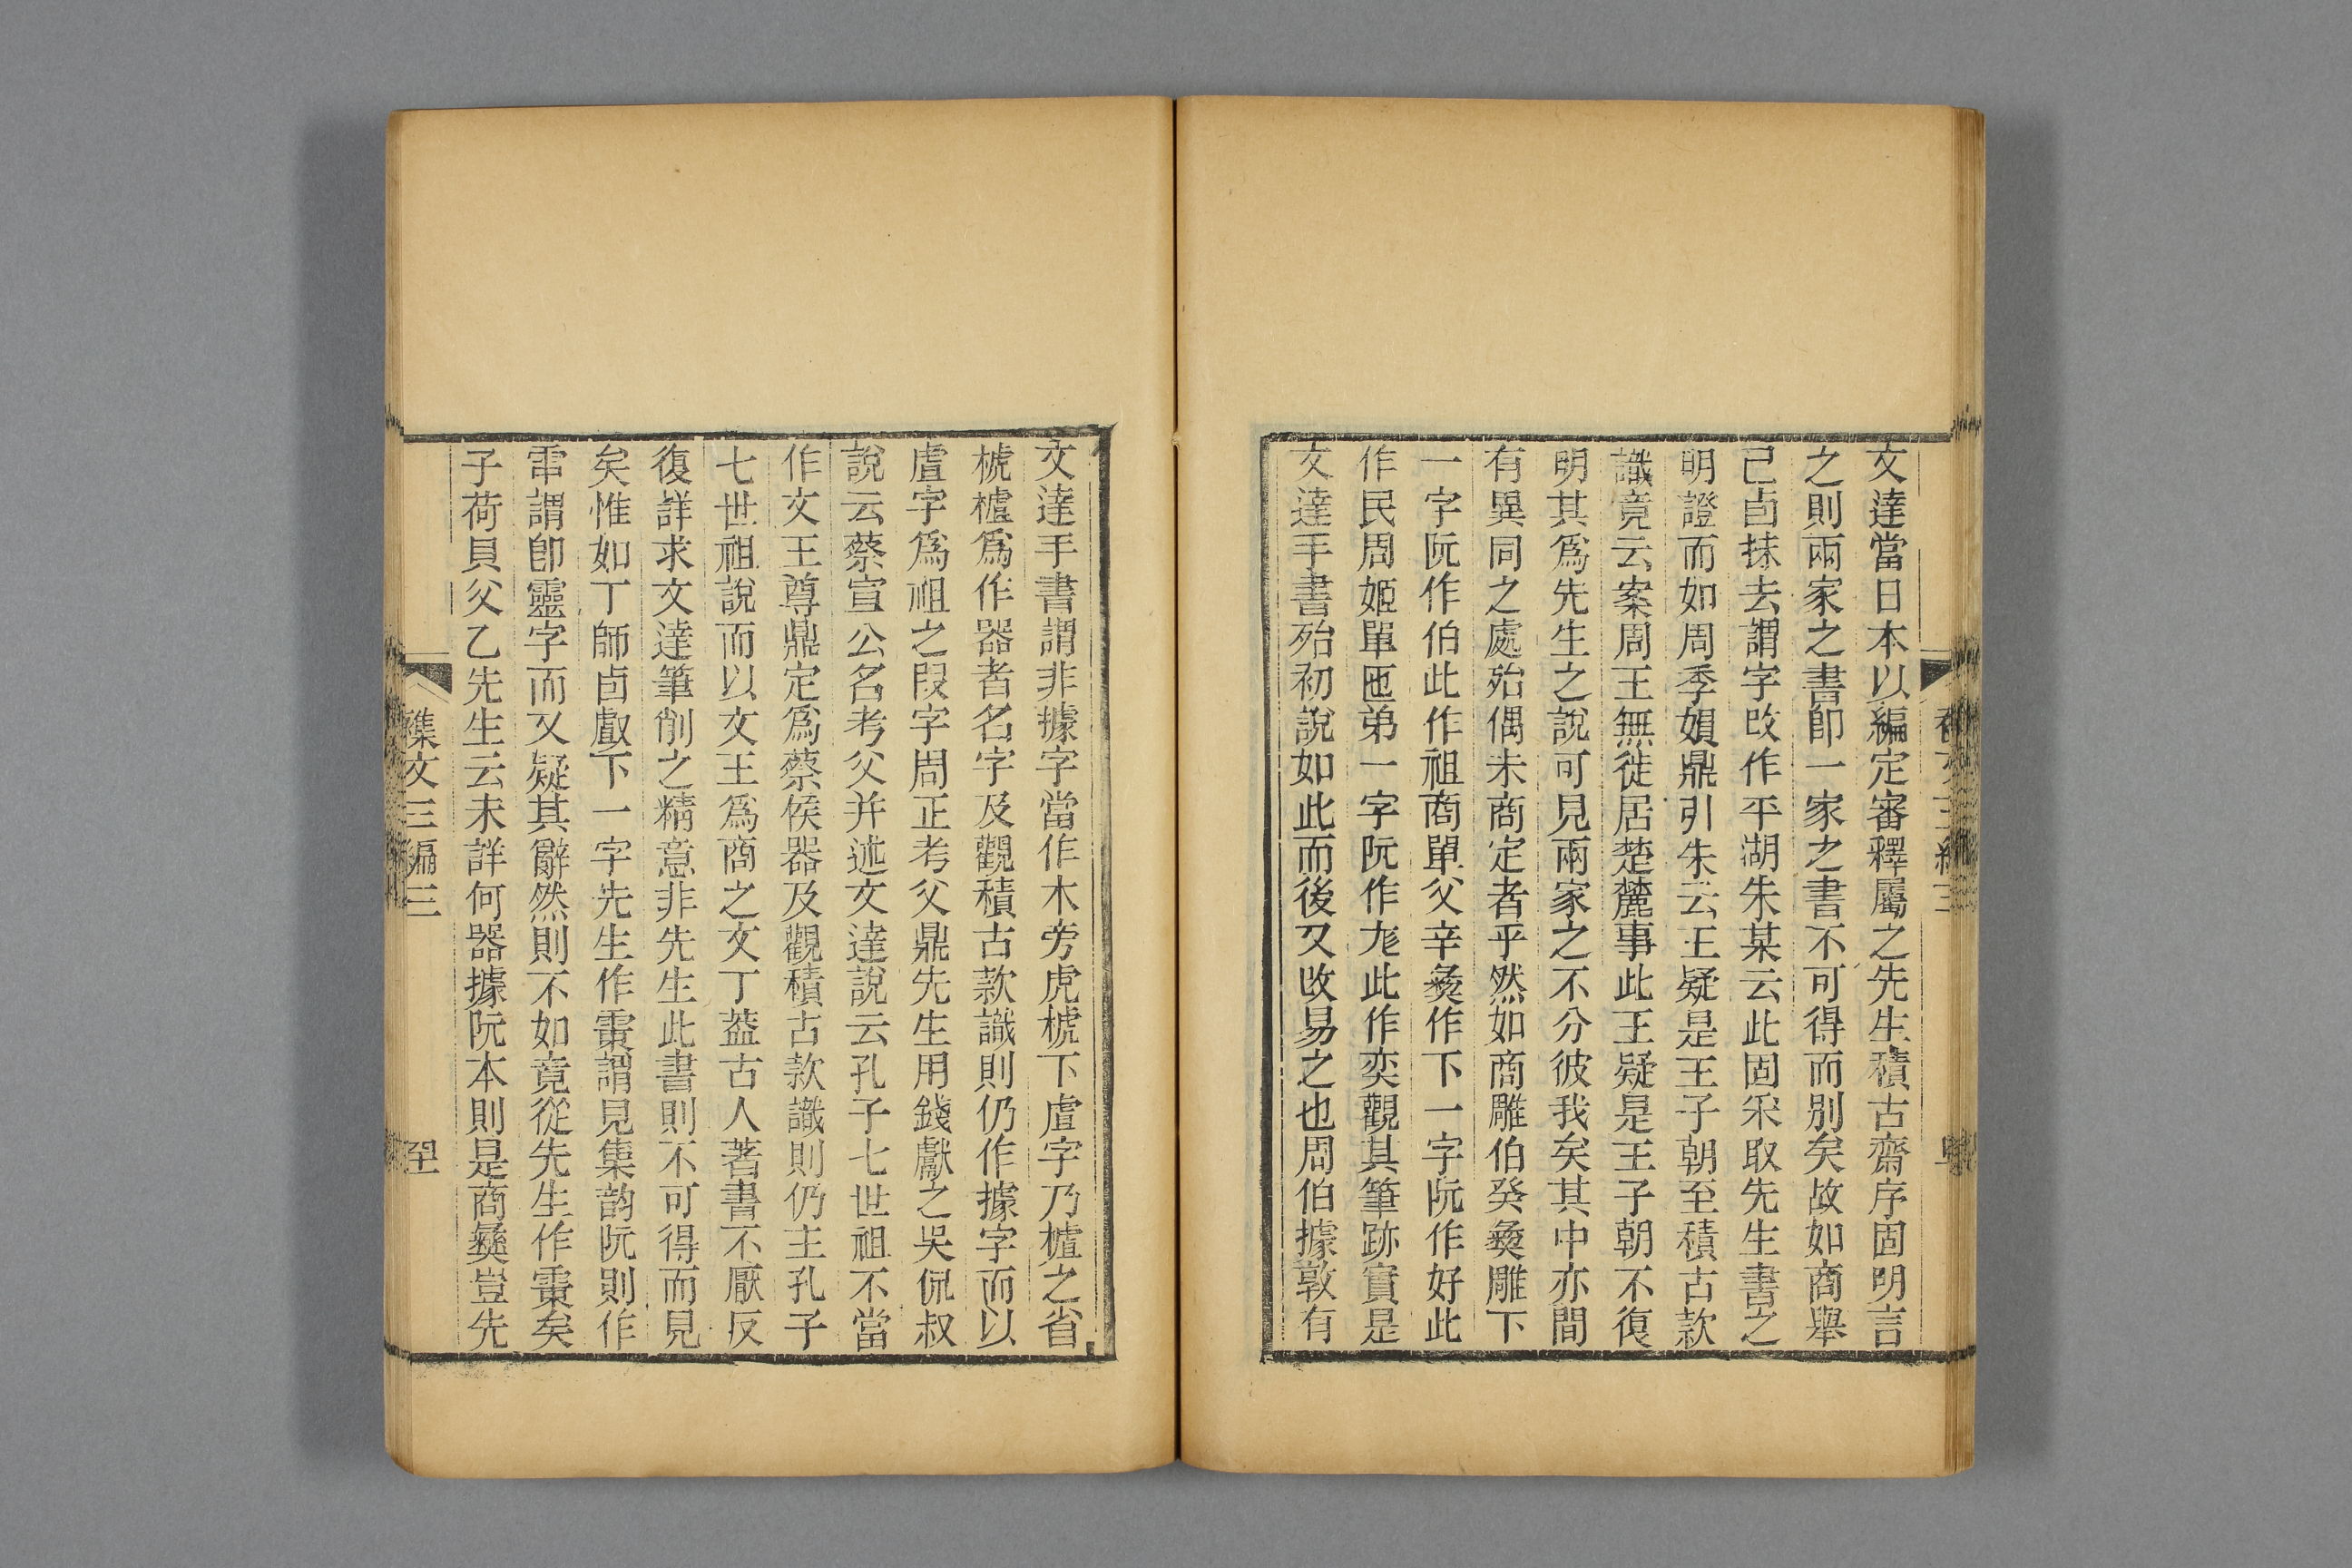 文達當日本以編定審釋屬之先生積古齋序固明言
之則兩家之書卽一家之書不可得而別矣故如商舉
己卣抹去謂字改作平湖朱某云此固采取先生書之
明證而如周季娟鼎引朱云王疑是王子朝至積古款
識竟云案周王無徙居楚麓事此王疑是王子朝不復
明其爲先生之說可見兩家之不分彼我矣其中亦間
有異同之處殆偶未商定者乎然如商雕伯癸彝雕下
一字阮作伯此作祖商單父辛彝作下一字阮作好此
作民周姬單匜弟一字阮作尨此作奕觀其筆跡實是
文達手書殆初說如此而後又改易之也周伯據敦有
文達手書謂非據字當作木旁虎樾下虘字乃樝之省
樾樝爲作器者名字及觀積古款識則仍作據字而以
虘字爲祖之叚字周正考父鼎先生用錢獻之吳侃叔
說云蔡宣公名考父并述文達說云孔子七世祖不當
作文王尊鼎定爲蔡侯器及觀積古款識則仍主孔子
七世祖說而以文王爲商之文丁葢古人著書不厭反
復詳求文達筆削之精意非先生此書則不可得而見
矣惟如丁師卣䖒下一字先生作𩂣謂見集韵阮則作
霝謂卽靈字而又疑其辭然則不如竟從先生作𩂣矣
子荷貝父乙先生云未詳何器據阮本則是商彝豈先
襍文三編三